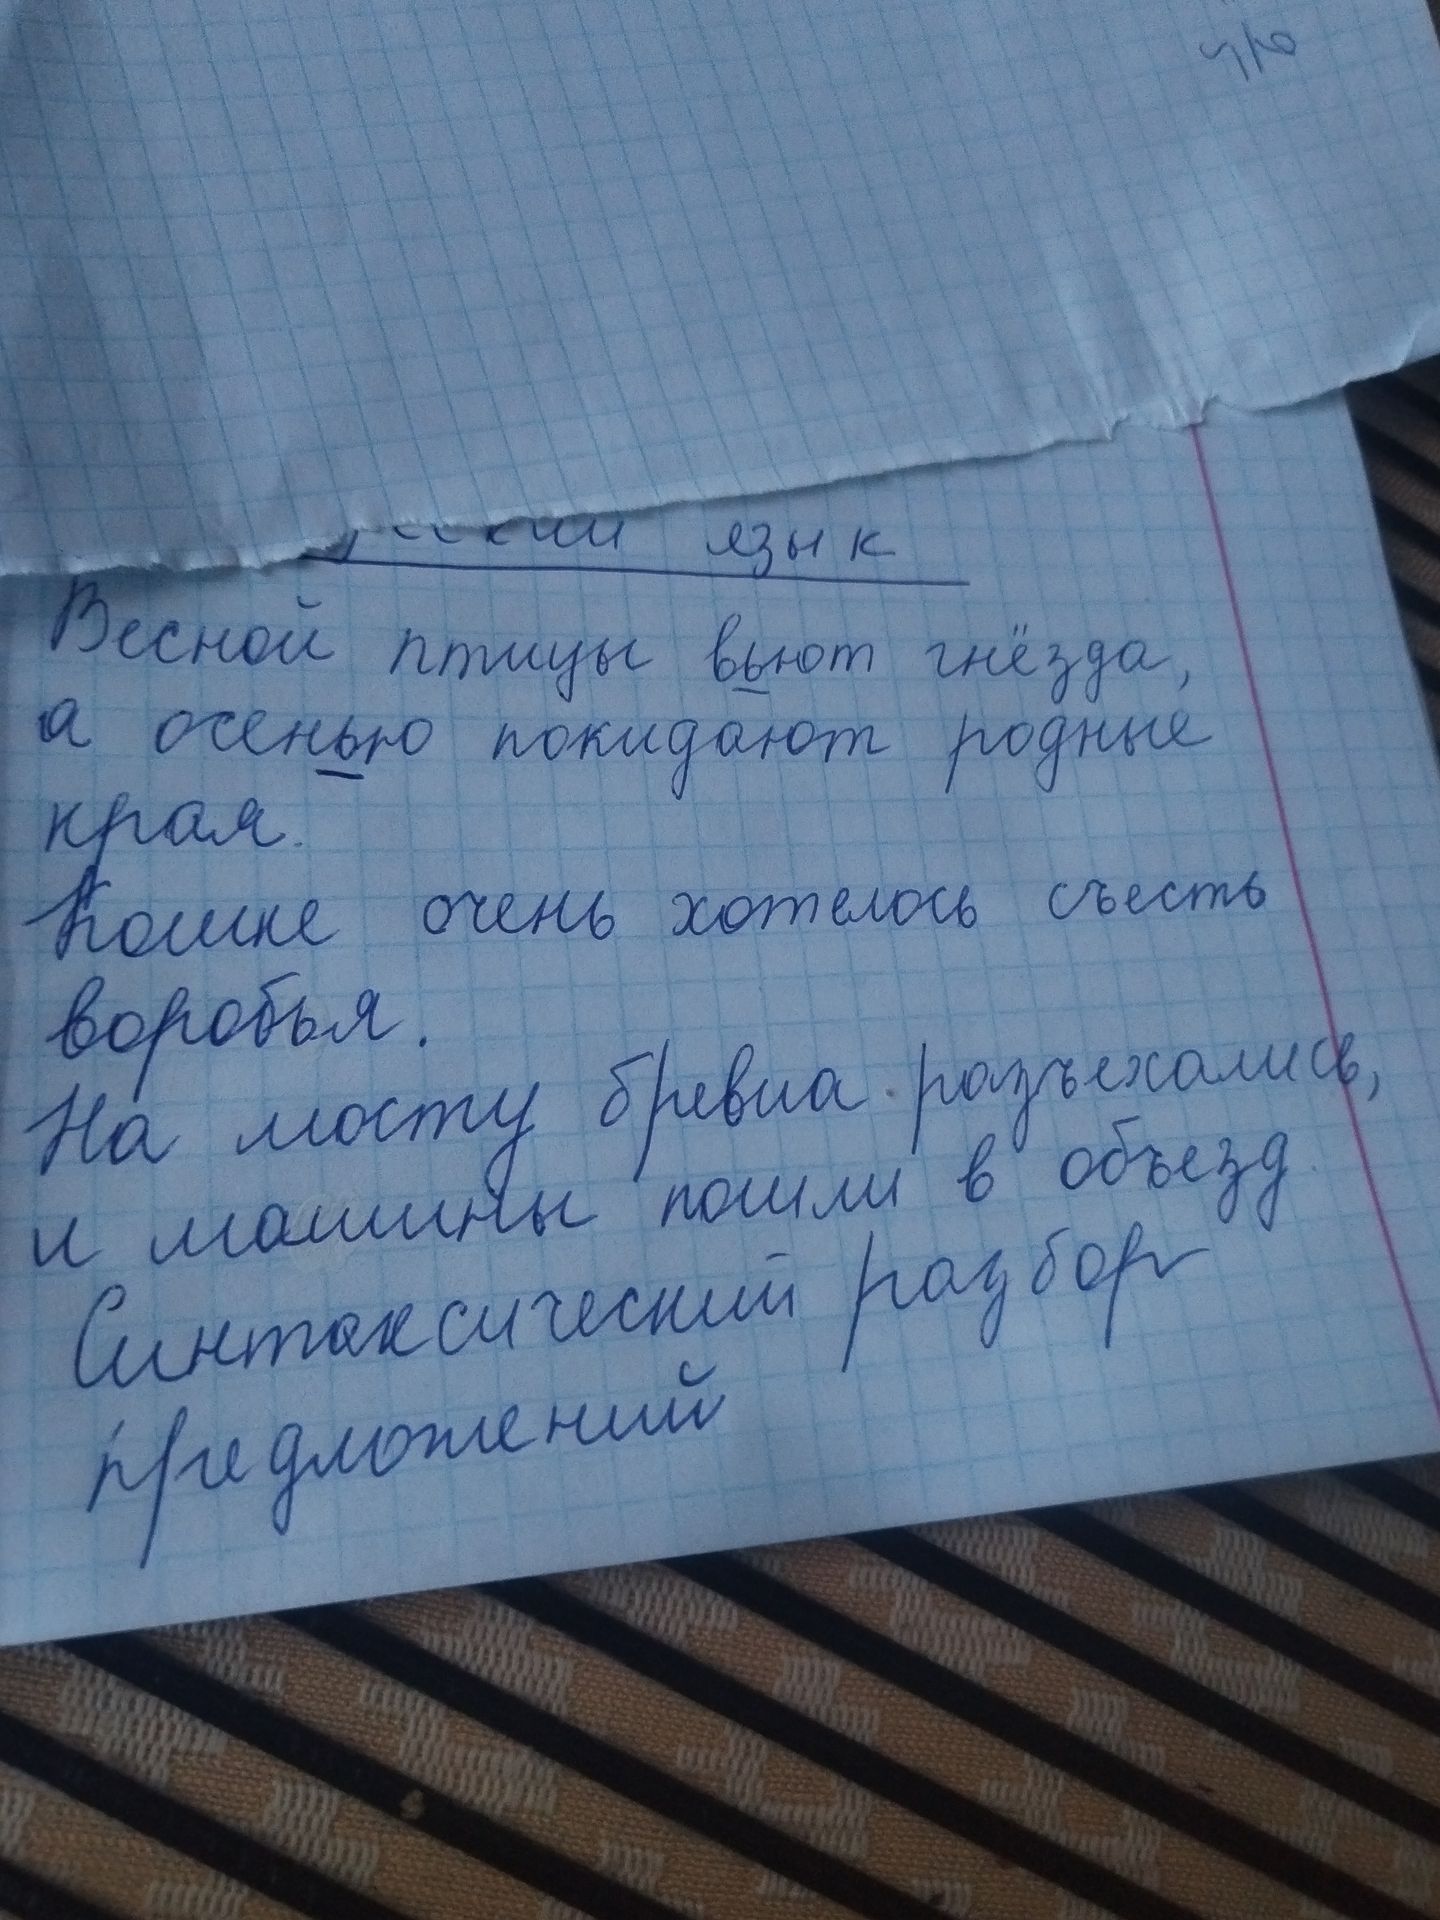 язык
Весной птицы вьют гнёзда,
а осенью покидают родные
края.
Кошке очень хотелось съесть
воробья.
На мосту бревна разъехались,
и машины пошли в объезд.
Синтаксический разбор
предложений